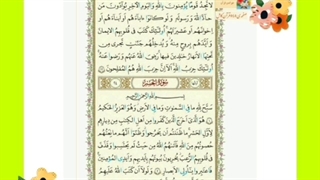 لَّا تَجِدُ قَوْمًا يُؤْمِنُونَ بِاللَّهِ وَالْيَوْمِ الْآخِرِ يُوَادُّونَ مَنْ
حَادَّ اللَّهَ وَرَسُولَهُ وَلَوْ كَانُوا آبَاءَهُمْ أَوْ أَبْنَاءَهُمْ أَوْ
إِخْوَانَهُمْ أَوْ عَشِيرَتَهُمْ أُولَئِكَ كَتَبَ فِي قُلُوبِهِمُ الْإِيمَانَ
وَأَيَّدَهُم بِرُوحٍ مِّنْهُ وَيُدْخِلُهُمْ جَنَّاتٍ تَجْرِي مِن
تَحْتِهَا الْأَنْهَارُ خَالِدِينَ فِيهَا رَضِيَ اللَّهُ عَنْهُمْ وَرَضُوا عَنْهُ
أُولَئِكَ حِزْبُ اللَّهِ أَلَا إِنَّ حِزْبَ اللَّهِ هُمُ الْمُفْلِحُونَ
سُورَةُ الْحَشْرِ
بِسْمِ اللَّهِ الرَّحْمَنِ الرَّحِيمِ
سَبَّحَ لِلَّهِ مَا فِي السَّمَاوَاتِ وَمَا فِي الْأَرْضِ وَهُوَ الْعَزِيزُ الْحَكِيمُ
هُوَ الَّذِي أَخْرَجَ الَّذِينَ كَفَرُوا مِنْ أَهْلِ الْكِتَابِ مِن دِيَارِهِمْ
لِأَوَّلِ الْحَشْرِ مَا ظَنَنتُمْ أَن يَخْرُجُوا وَظَنُّوا أَنَّهُم مَّانِعَتُهُمْ
حُصُونُهُم مِّنَ اللَّهِ فَأَتَاهُمُ اللَّهُ مِنْ حَيْثُ لَمْ يَحْتَسِبُوا وَقَذَفَ
فِي قُلُوبِهِمُ الرُّعْبَ يُخْرِبُونَ بُيُوتَهُم بِأَيْدِيهِمْ وَأَيْدِي الْمُؤْمِنِينَ
فَاعْتَبِرُوا يَا أُولِي الْأَبْصَارِ وَلَوْلَا أَن كَتَبَ اللَّهُ عَلَيْهِمُ